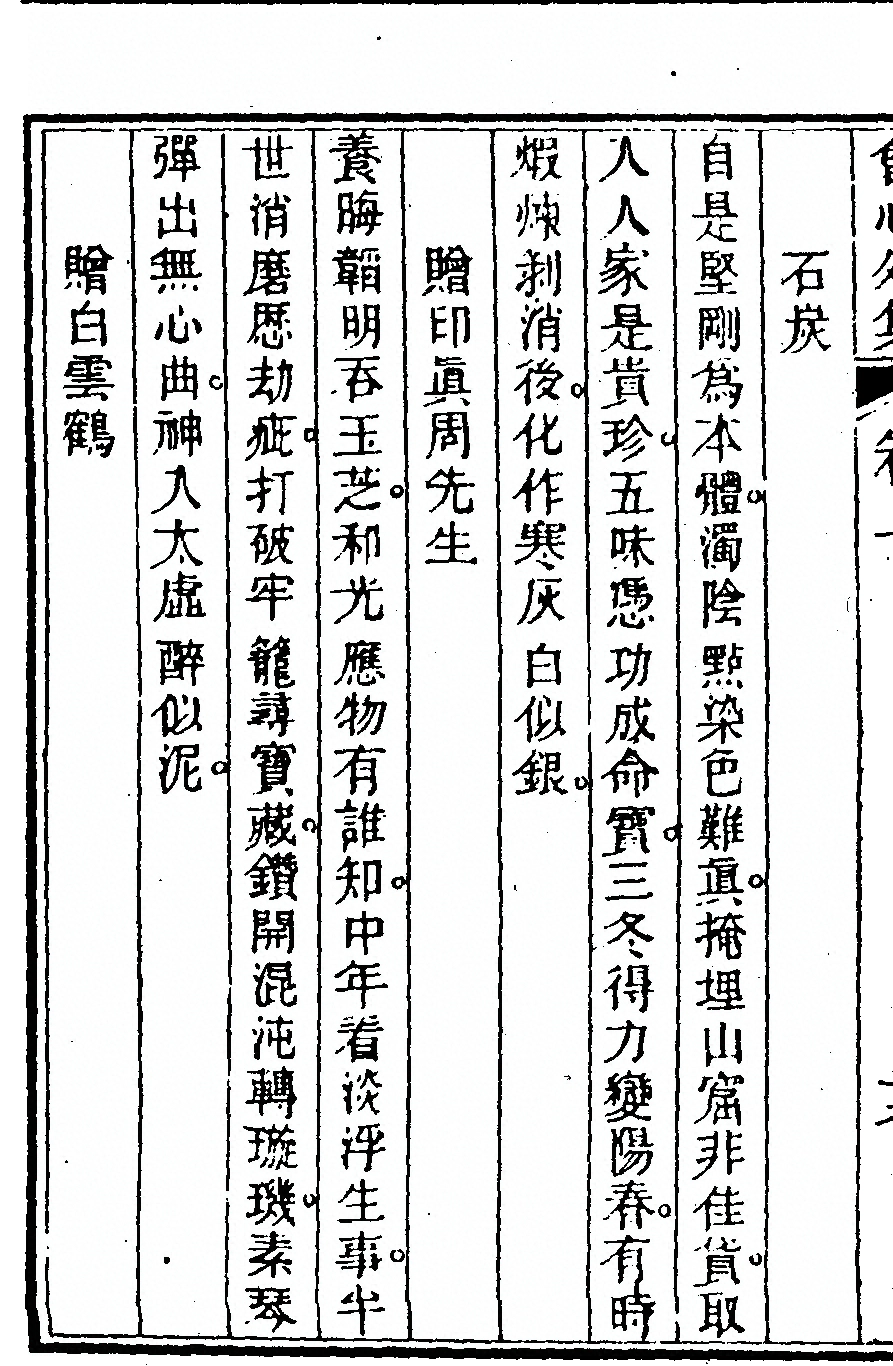 石炭
自是堅剛爲本體。濁陰點染色難眞。掩埋山窟非佳貨。取
人人家是貴珍。五味憑功成命寶。三冬得力變陽春。有時
煅煉剥消後。化作寒灰白似銀。
贈印眞周先生
養晦韜明吞玉芝。和光應物有誰知。中年看淡浮生事。半
世消磨歷劫疵。打破牢籠尋寶藏。鑽開混沌轉璇璣。素琴
彈出無心曲。神入太虛醉似泥。
贈白雲鶴